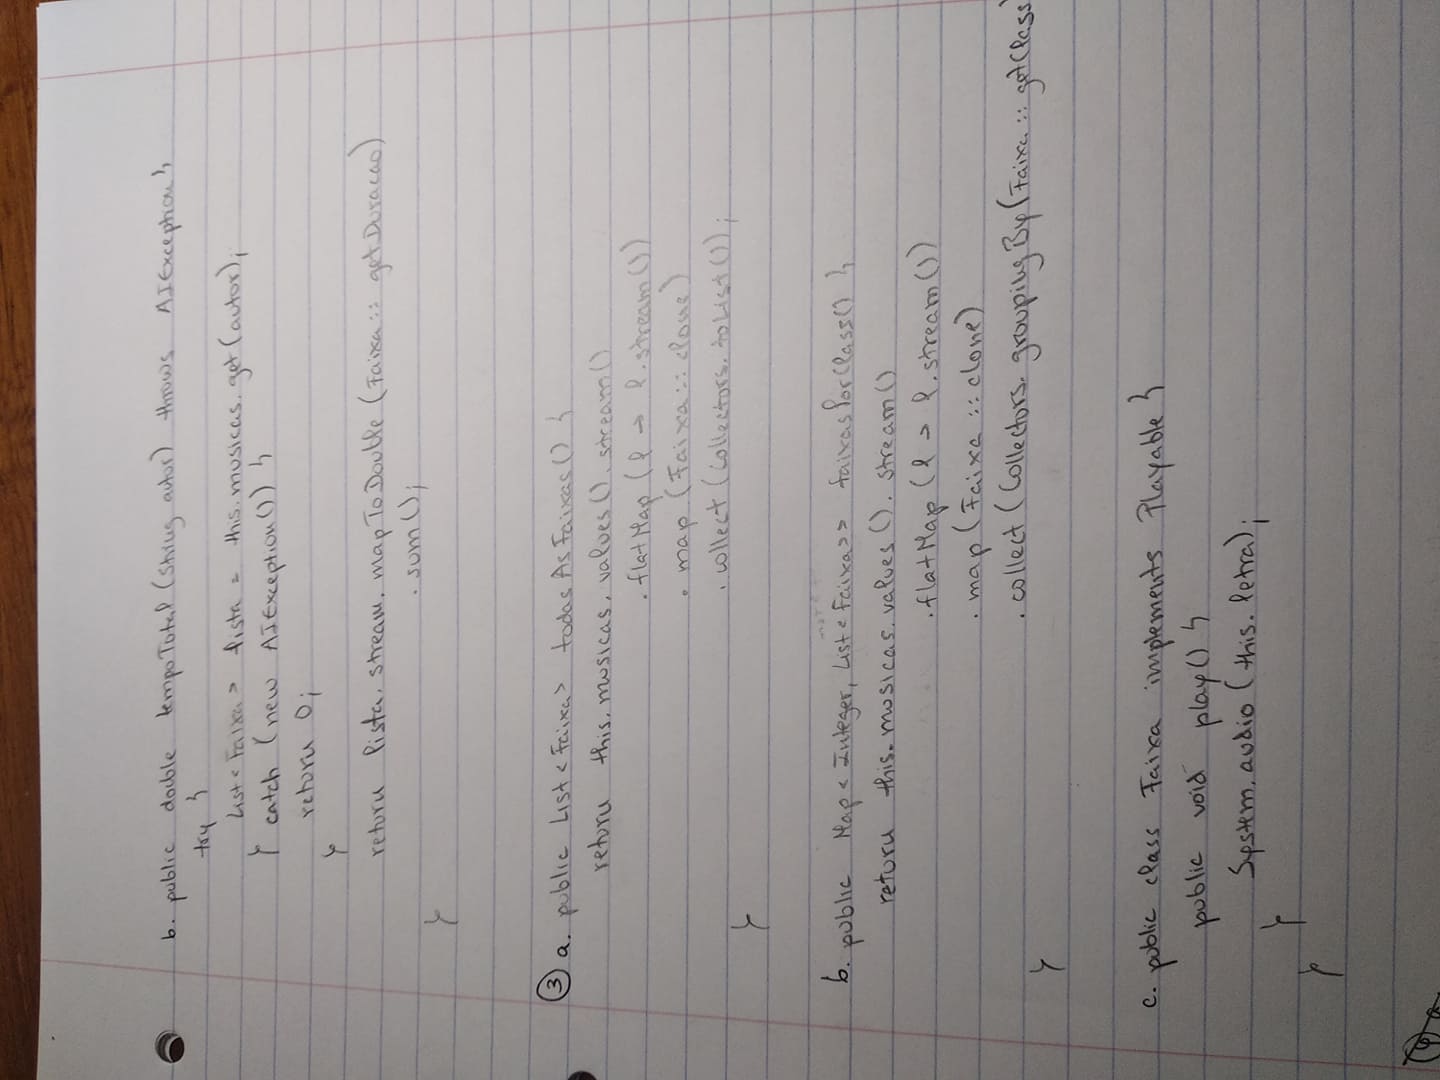 b. public double tempoTotal (String autor) throws AIException {
try {
List<Faixa> lista = this.musicas.get(autor);
} catch (new AIException()) {
return 0;
}
return lista.stream.mapToDouble (Faixa::getDuracao)
.sum();
}
3 a. public List<Faixa> todasAsFaixas() {
return this.musicas.values().stream()
.flatMap (l -> l.stream())
.map (Faixa::clone)
.collect (Collectors.toList());
}
b. public Map<Integer, List<Faixa>> faixasPorClass() {
return this.musicas.values().stream()
.flatMap (l -> l.stream())
.map (Faixa::clone)
.collect (Collectors.groupingBy(Faixa::getClass)
}
c. public class Faixa implements Playable {
public void play() {
System.audio (this.letra);
}
}